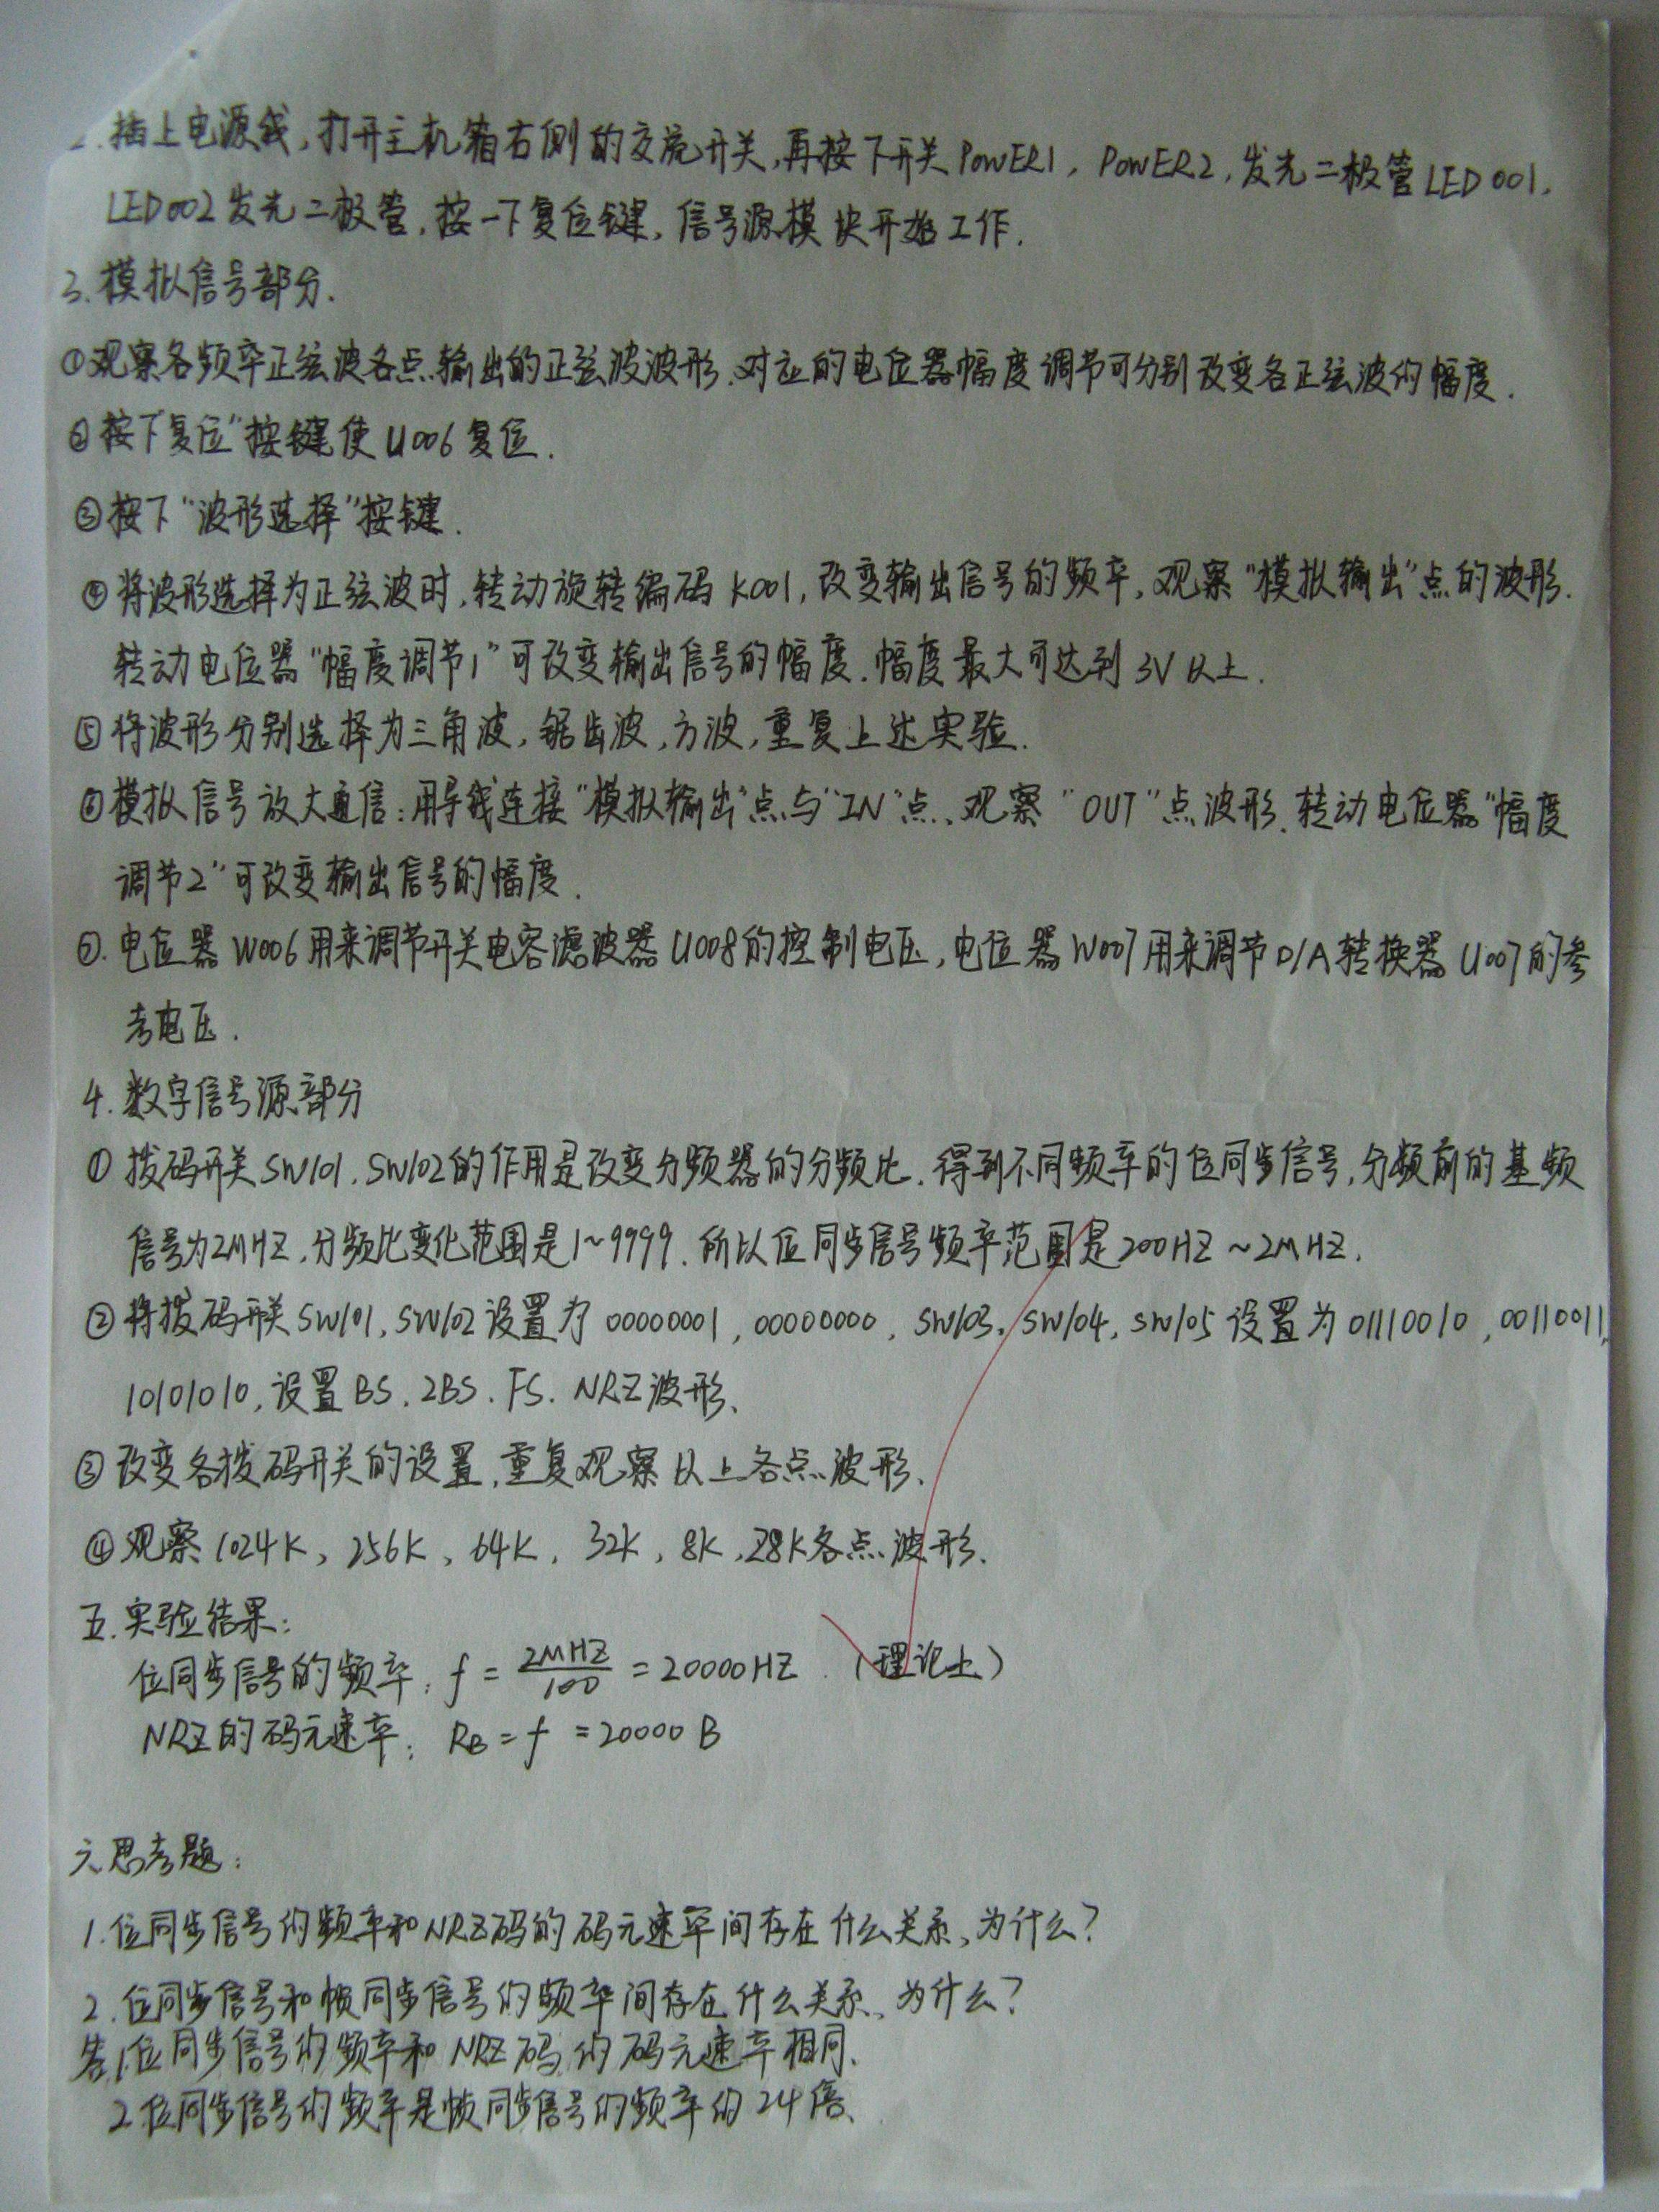 2. 插上电源线,打开主机箱右侧的交流开关,再按下开关POWER1, POWER2,发光二极管LED001,
LED002发光二极管,按一下复位键,信号源模块开始工作.
3. 模拟信号部分.
①观察各频率正弦波各点输出的正弦波波形.对应的电位器幅度调节可分别改变各正弦波的幅度.
②按下“复位”按键使U006复位.
③按下“波形选择”按键.
④将波形选择为正弦波时,转动旋转编码K001,改变输出信号的频率,观察“模拟输出”点的波形.
转动电位器“幅度调节1”可改变输出信号的幅度.幅度最大可达到3V以上.
⑤将波形分别选择为三角波,锯齿波,方波,重复上述实验.
⑥模拟信号放大通信:用导线连接“模拟输出”点与“IN”点、观察“OUT”点波形.转动电位器“幅度
调节2”可改变输出信号的幅度.
⑦.电位器W006用来调节开关电容滤波器U008的控制电压,电位器W007用来调节D/A转换器U007的参
考电压.
4. 数字信号源部分
① 拨码开关SW101.SW102的作用是改变分频器的分频比.得到不同频率的位同步信号,分频前的基频
信号为2MHZ,分频比变化范围是1~9999.所以位同步信号频率范围是200HZ~2MHZ.
②将拨码开关SW101,SW102设置为00000001,00000000,SW103,SW104,SW105设置为01110010,00110011,
10101010,设置BS.2BS.FS.NRZ波形、
③改变各拨码开关的设置,重复观察以上各点波形、
④观察1024K、256K、64K、32K,8K,Z8K各点波形.
五.实验结果:
位同步信号的频率: f = 2MHZ/100 = 20000HZ.(理论上)
NRZ的码元速率: RB = f = 20000 B
六思考题:
1.位同步信号的频率和NRZ码的码元速率间存在什么关系、为什么?
2.位同步信号和帧同步信号的频率间存在什么关系、为什么?
答:1位同步信号的频率和NRZ码的码元速率相同、
2.位同步信号的频率是帧同步信号的频率的24倍、